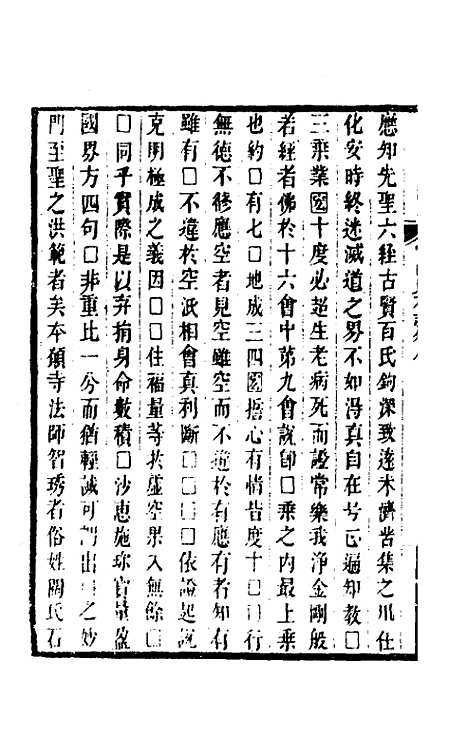 應知先聖六經古賢百氏鉤深致遠未濟苦集之川仕
化安時終迷滅道之界不如淂真自在号正遍知教□
三乘業圓十度必超生老病死而證常樂我淨金剛般
若經者佛於十六會中第九會說師□乘之內最上乘
也約□有七□地成三四圓揩心有情皆度十□□行
無德不修應空者見空雖空而不違於有應有者知有
雖有□不違於空泯相會真利斷□□□□依證起說
克明極成之義因□□住福量等於虛空果入無餘□
□同乎實際是以弃捐身命數積□沙惠施珎官量盈
國界方四句□非重比一兮而猶輕誠可謂出之妙
門至聖之洪範者矣夲願寺法師智琇者俗姓閻氏石